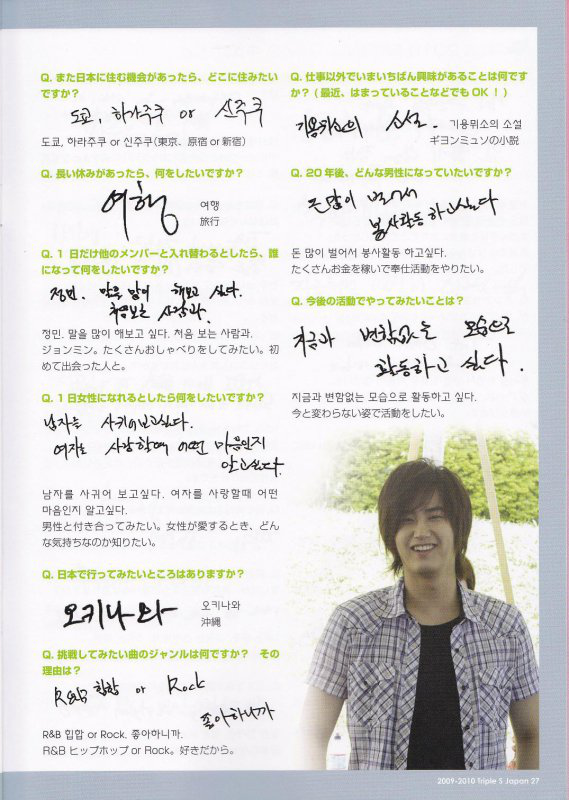 Q. また日本に住む機会があったら、どこに住みたい
ですか？
도쿄, 하라주쿠 or 신주쿠
도쿄, 하라주쿠 or 신주쿠（東京、原宿 or 新宿）
Q. 長い休みがあったら、何をしたいですか？
여행
여행
旅行
Q. 1 日だけ他のメンバーと入れ替わるとしたら、誰
になって何をしたいですか？
정민. 말을 많이 해보고 싶다.
처음 보는 사람과.
정민. 말을 많이 해보고 싶다. 처음 보는 사람과.
ジョンミン。たくさんおしゃべりをしてみたい。初
めて出会った人と。
Q. 1 日女性になれるとしたら何をしたいですか？
남자를 사귀어보고싶다.
여자를 사랑할때 어떤 마음인지
알고싶다.
남자를 사귀어 보고싶다. 여자를 사랑할때 어떤
마음인지 알고싶다.
男性と付き合ってみたい。女性が愛するとき、どん
な気持ちなのか知りたい。
Q. 日本で行ってみたいところはありますか？
오키나와
오키나와
沖縄
Q. 挑戦してみたい曲のジャンルは何ですか？　その
理由は？
R&B 힙합 or Rock
좋아하니까
R&B 힙합 or Rock. 좋아하니까.
R&B ヒップホップ or Rock。好きだから。
Q. 仕事以外でいまいちばん興味があることは何です
か？（最近、はまっていることなどでも OK ！）
기용뮈소의 소설.
기용뮈소의 소설
ギヨンミュソの小説
Q. 20 年後、どんな男性になっていたいですか？
돈 많이 벌어서
봉사활동 하고싶다
돈 많이 벌어서 봉사활동 하고싶다.
たくさんお金を稼いで奉仕活動をやりたい。
Q. 今後の活動でやってみたいことは？
지금과 변함없는 모습으로
활동하고 싶다.
지금과 변함없는 모습으로 활동하고 싶다.
今と変わらない姿で活動をしたい。
2009-2010 Triple S Japan 27